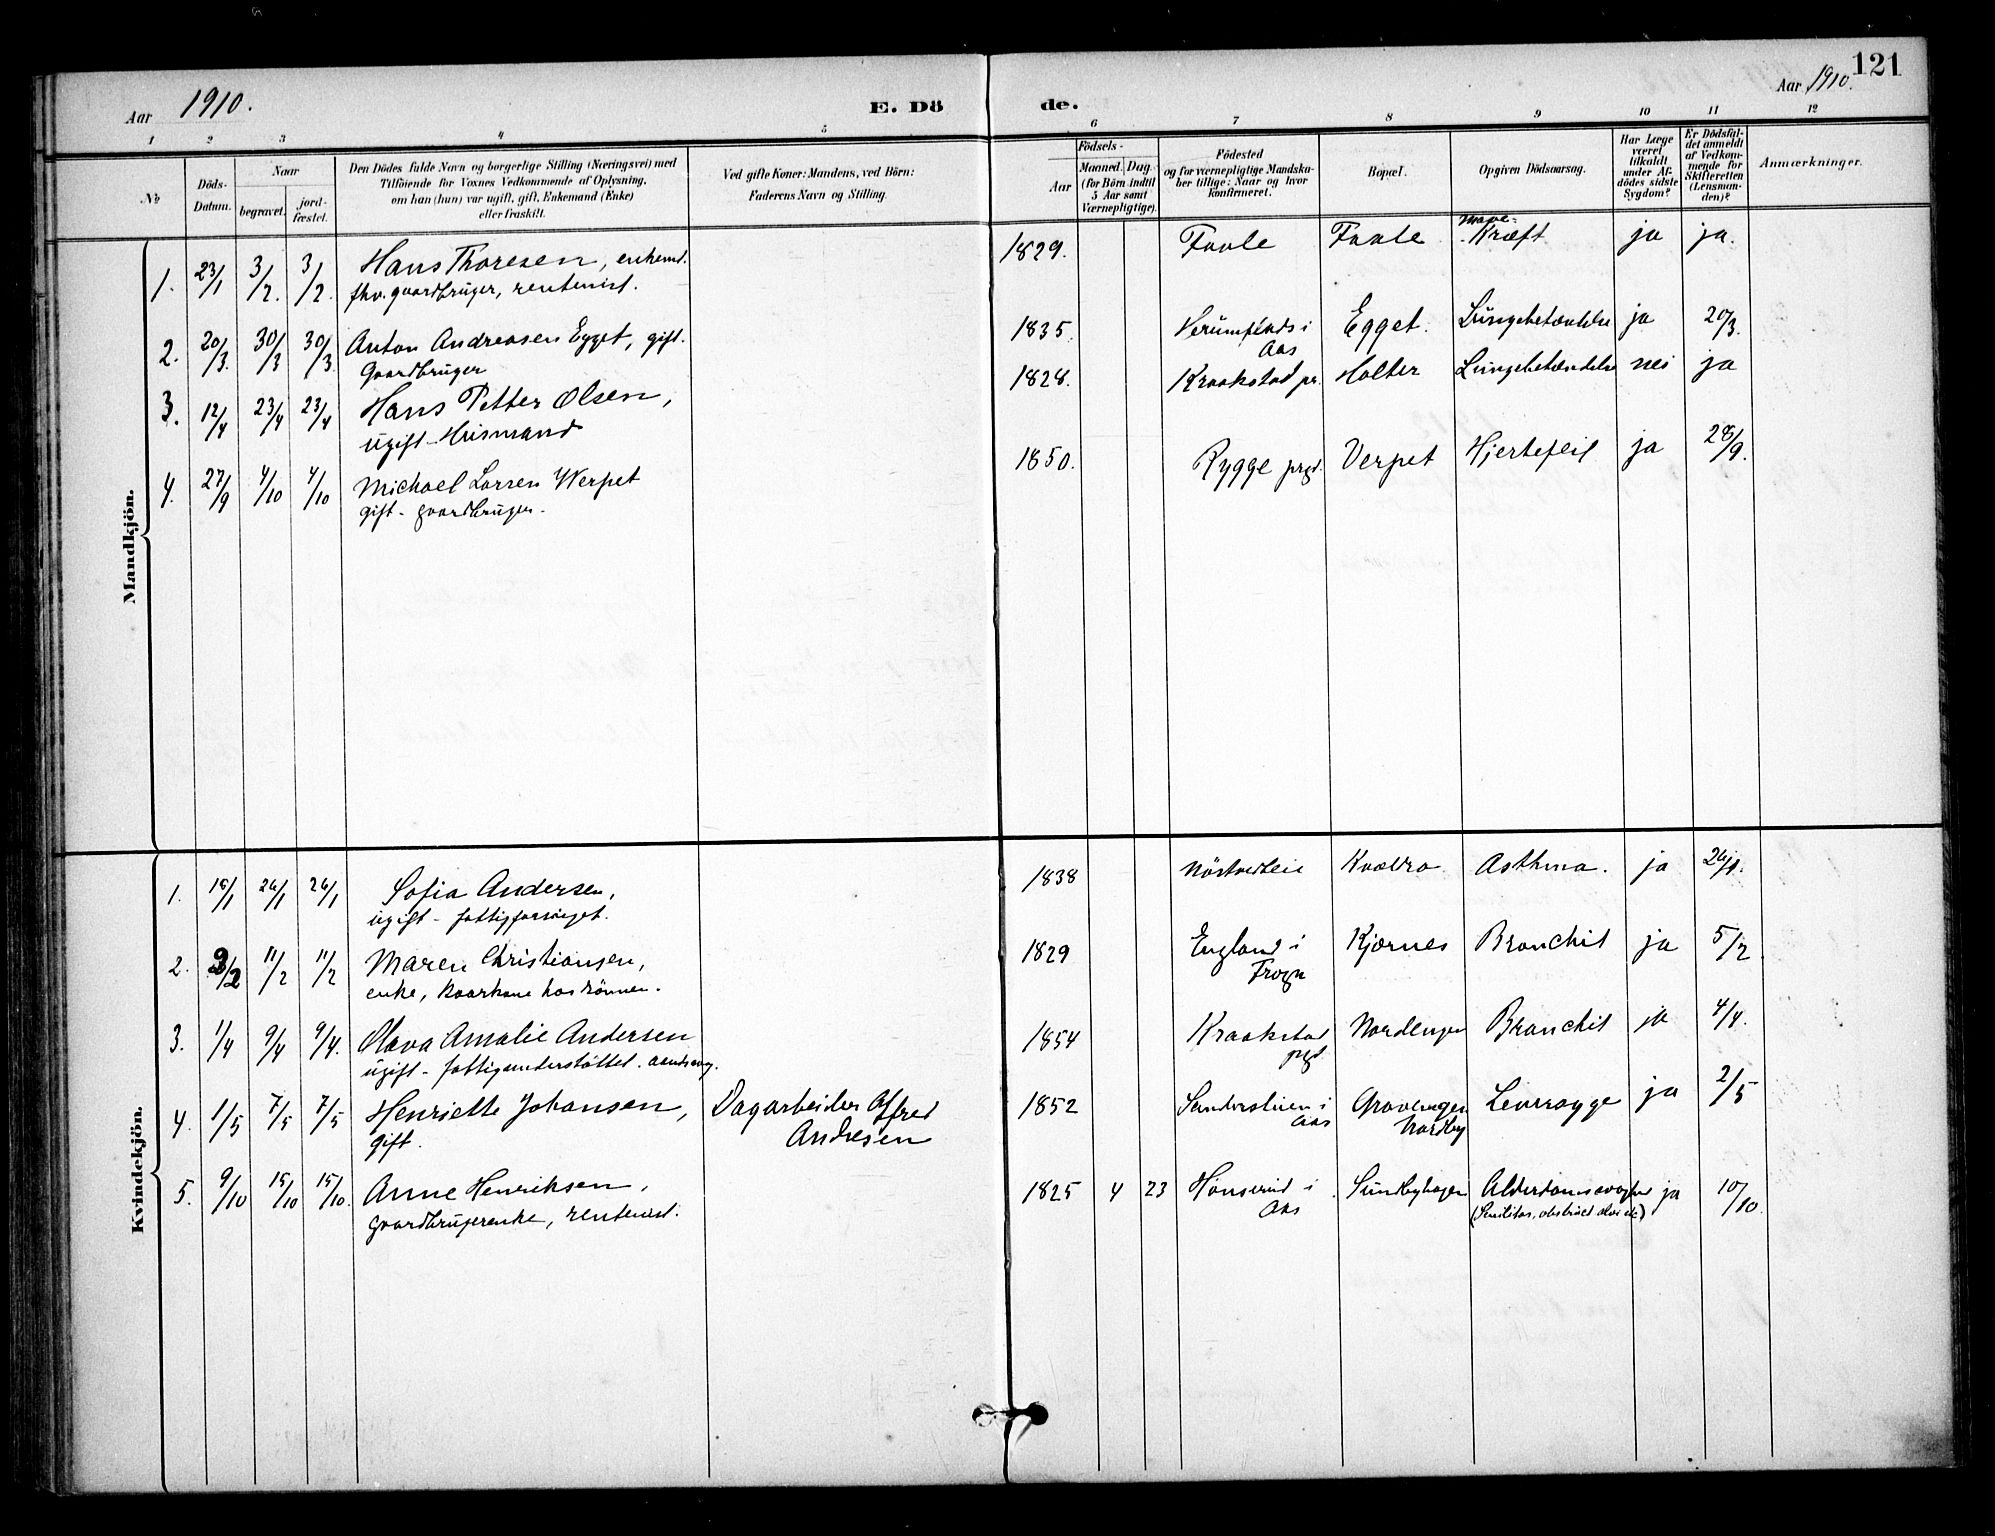 121
Aar 1910.
E. Döde.
Aar 1910.
1 2 3 4 5 6 7 8 9 10 11 12
No
Döds-Datum.
Naar
begravet.
jord-fæstet.
Den Dödes fulde Navn og borgerlige Stilling (Næringsvei) med
Tilföiende for Voxnes Vedkommende af Oplysning,
om han (hun) var ugift, gift, Enkemand (Enke)
eller fraskilt.
Ved gifte Koner: Mandens, ved Börn:
Faderens Navn og Stilling.
Födsels-
Aar
Maaned. Dag.
(for Børn indtil
5 Aar samt
Værnepligtige).
Födested
og for værnepligtige Mandska-
ber tillige: Naar og hvor
konfirmeret.
Bopæl.
Opgiven Dödsaarsag.
Har Læge
været
tilkaldt
under Af-
dödes sidste
Sygdom?
Er Dödsfal-
det anmeldt
af Vedkom-
mende for
Skifteretten
(Lensman-
den)?
Anmærkninger.
Mandkjön.
1. 23/1 3/2. 3/2. Hans Thoresen, enkemd. 1829. Faale Faale Mave-Kræft ja ja.
fhv. gaardbruger, rentenist.
2. 20/3. 30/3 30/3 Anton Andreasen Egget, gift. 1835. i Aas Egget. Lungebetændelse ja 20/3.
Gaardbruger
3. 12/4 23/4 23/4 Hans Petter Olsen, 1828. Kraakstad pr. Holter Lungebetændelse nei ja
ugift - Husmand
4. 27/9 4/10 4/10 Michael Larsen Werpet 1850. Rygge prgd. Verpet Hjertefeil ja 28/9.
gift - gaardbruger.
Kvindekjön.
1. 18/1 26/1 26/1 Sofia Andersen, 1838 Kvældro Asthma. ja
ugift - fattigforsörget.
2. 3/2 11/2 11/2 Maren Christiansen, 1829 England i Frogn Kjærnes Bronchit ja 5/2
enke, kaarkone hos sönnen.
3. 1/4 9/4 9/4. Olava Amalie Andersen 1854 Kraakstad prgd Nordengen Bronchit ja 4/4.
ugift - fattigunderstöttet.
4. 1/5 7/5 7/5 Henriette Johansen, Dagarbeider Alfred Andresen 1852 i Aas Nordby ja 2/5
gift.
5. 9/10 15/10 15/10. Anne Henriksen, 1825 4 23 i Aas Sundbyhagen Alderdomssvaghed ja 10/10.
gaardbrugerenke, rentenist.